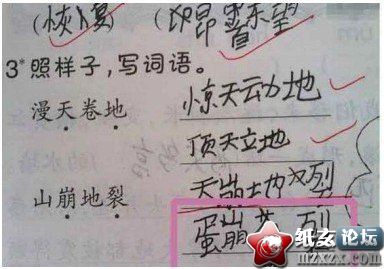 (恢复) (昂首东望
3*照样子,写词语。
漫天卷地 惊天动地
顶天立地
山崩地裂 天崩地烈
蛋崩 列
纸玄论坛
mzxzx.com